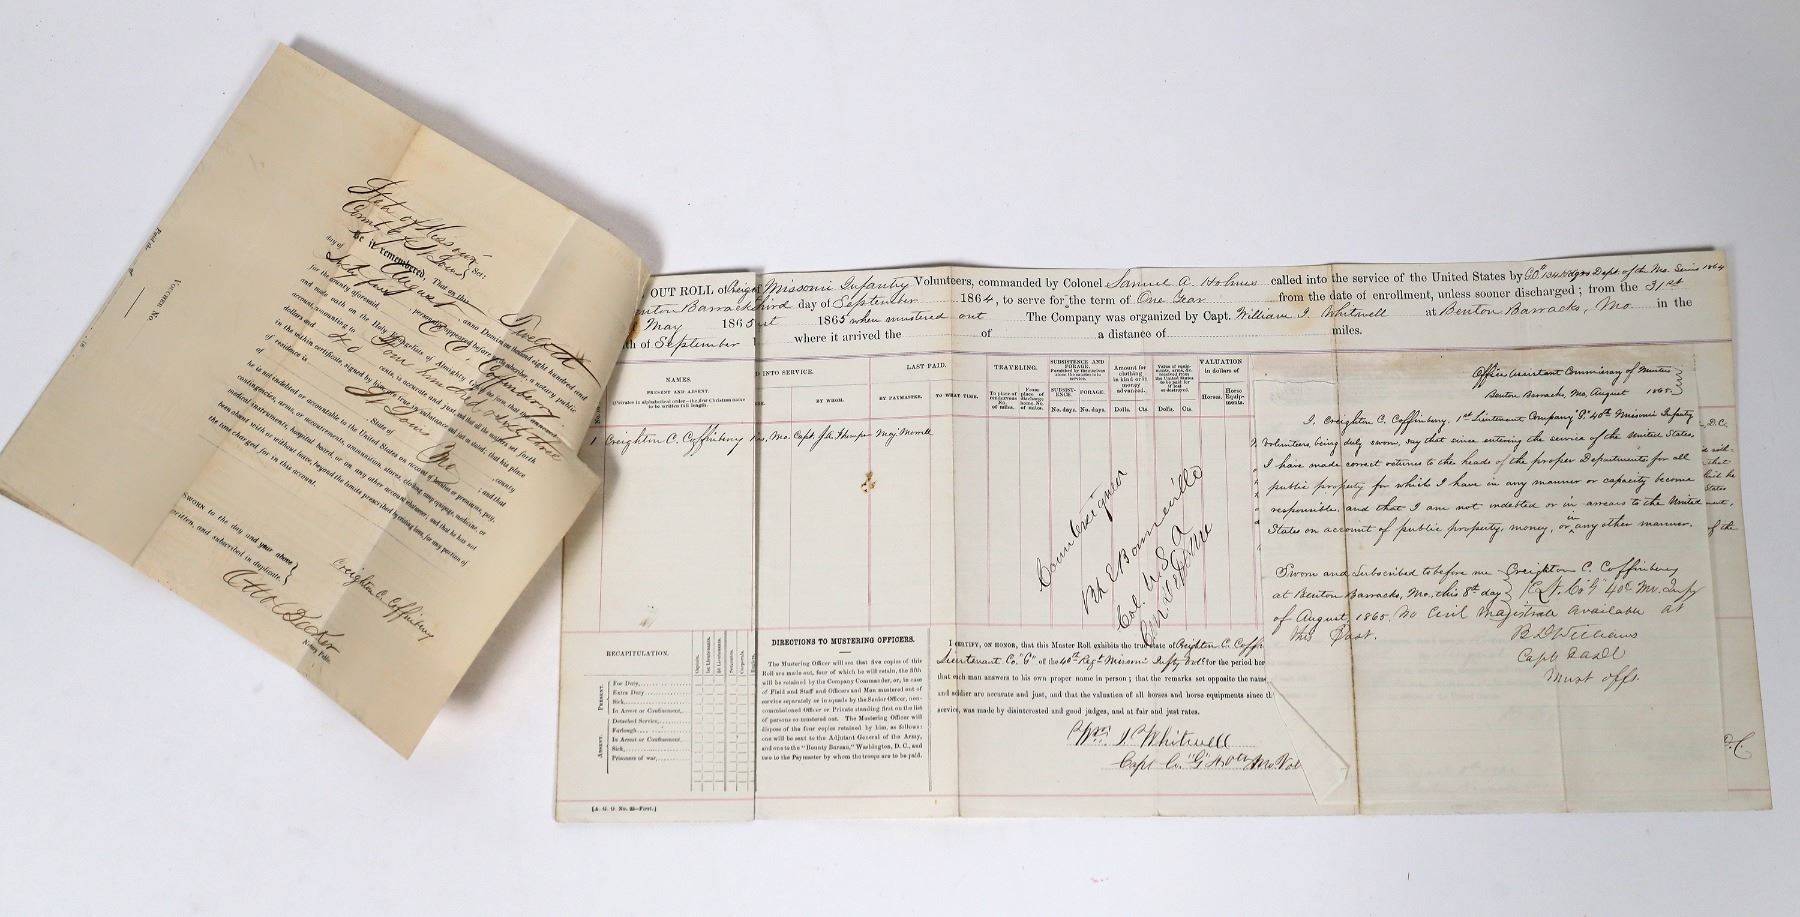 State of Missouri
County of St Louis } Set:
Be it remembered, That on this Twelveth
day of August, anno Domini one thousand eight hundred and
Sixty five, personally appeared before me
for the county aforesaid, C. C. Coffinbery
and made oath on the Holy Evangelists of Almighty God
account, amounting to Four hundred & sixty three
dollars and 40 cents, is accurate and just
in the within certificate, signed by him, are true in substance and just as stated; that his place
of residence is St Louis, county
of , State of Mo ; and that
he is not indebted or accountable to the United States on account of
contingencies, arms, or accoutrements, ammunition, stores, clothing, camp equipage, medicine, or
medical instruments, hospital, board, or on any other account whatever, and that he has not
been absent with or without leave, beyond the limits prescribed by existing laws, for any portion of
the time charged for in this account.
SWORN to the day and year above
written, and subscribed in duplicate,
Creighton C. Coffinberry
Notary Public.
VOUCHER No.
Paid
OUT ROLL of Creigh Missouri Infantry Volunteers, commanded by Colonel Samuel A Holmes called into the service of the United States by GO No 134 Hdqrs Dept of the Mo. Series 1864
enton Barracks third day of September 1864, to serve for the term of One Year from the date of enrollment, unless sooner discharged; from the 31st
May 1865 st 1865 when mustered out The Company was organized by Capt. William I. Whitwell at Benton Barracks, Mo. in the
th of September where it arrived the of a distance of miles.
NAMES.
PRESENT AND ABSENT.
(Privates in alphabetical order—the first Christian name
to be written full length.)
D INTO SERVICE.
BY WHOM.
LAST PAID.
BY PAYMASTER.
TO WHAT TIME.
TRAVELING.
To place of
rendezvous
No.
of miles.
From
place of
discharge
home. No.
of miles.
SUBSISTENCE AND
FORAGE.
SUBSIST-
ENCE.
No. days.
FORAGE.
No. days.
Amount for
clothing
in kind or in
money
advanced.
Dolls. Cts.
Value of equip-
ments, arms, &c.
received from
the United States
to be paid for
if lost
or destroyed.
Dolls. Cts.
VALUATION
in dollars of
Horses.
Horse
Equip-
ments.
1 Creighton C. Coffinbery ks, Mo. Capt. J.A. Thompson Maj Morrell
Countersigned
Col. U.S.A.
RECAPITULATION.
1st Lieutenants.
2d Lieutenants.
Sergeants.
Corporals.
PRESENT
For Duty,
Extra Duty
Sick,
In Arrest or Confinement,
ABSENT.
Detached Service,
Furlough,
In Arrest or Confinement,
Sick,
Prisoners of war,
[A. G. O. No. 23—First.]
DIRECTIONS TO MUSTERING OFFICERS.
The Mustering Officer will see that five copies of this
Roll are made out, four of which he will retain, the fifth
will be retained by the Company Commander, or, in case
of Field and Staff and Officers and Man mustered out of
service separately or in squads by the Senior Officer, non-
commissioned Officer or Private standing first on the list
of persons so mustered out. The Mustering Officer will
dispose of the four copies retained by him, as follows:
one will be sent to the Adjutant General of the Army,
and one to the "Bounty Bureau," Washington, D. C., and
two to the Paymaster by whom the troops are to be paid.
I CERTIFY, ON HONOR, that this Muster Roll exhibits the true state of Creighton C. Coffin
Lieutenant Co. "G" of the 40th Regt Missouri Infty Vols for the period her
that each man answers to his own proper name in person; that the remarks set opposite the name
and soldier are accurate and just, and that the valuation of all horses and horse equipments since th
service, was made by disinterested and good judges, and at fair and just rates.
Wm I Whitwell
Capt Co. "G" 40th Mo Vol
Office Assistant Commissary of Musters
Benton Barracks, Mo, August 1865.
I, Creighton C. Coffinbery, 1st Lieutenant Company "G" 40th Missouri Infantry
Volunteers, being duly sworn, say that since entering the service of the United States,
I have made correct returns to the heads of the proper Departments, for all
public property for which I have in any manner or capacity become
responsible, and that I am not indebted or in arrears to the United
States on account of public property, money, or in any other manner.
Sworn and Subscribed to before me
at Benton Barracks, Mo, this 8th day
of August, 1865. No Civil Magistrate Available at
this Post.
Creighton C. Coffinbery
1st Lt. Co "G" 40th Mo. Infy
B D Williams
Capt
Must offr.
, D.C.
that
States
of the
D.C.